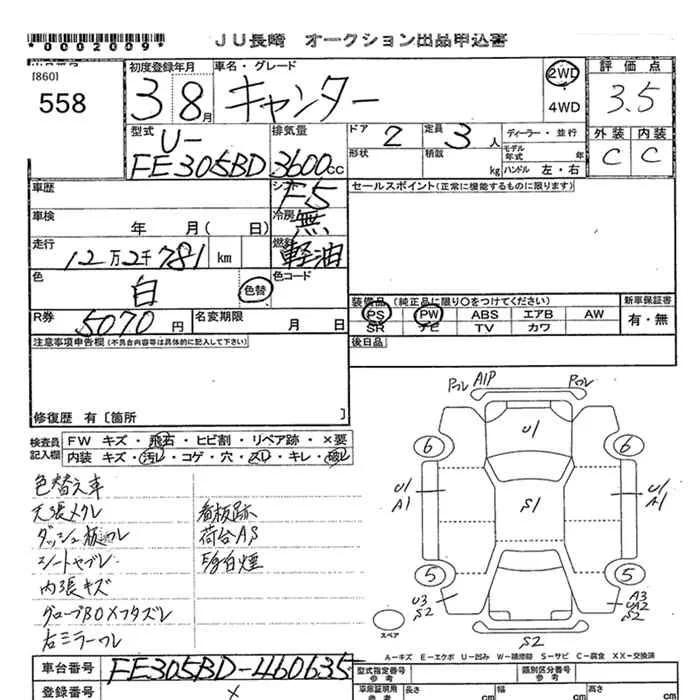 *0002009*
JU長崎 オークション出品申込書
[860]
558
初度登録年月
3 8月
車名・グレード
キャンター
2WD
4WD
評価点
3.5
外装 内装
C C
型式
U-
FE305BD
排気量
3600cc
ドア 2
定員 3人
形状
積載 kg
ディーラー・並行
モデル年式 年
ハンドル 左・右
車歴
シフト F5
セールスポイント(正常に機能するものに限ります)
車検 年 月( 日)
冷房 無
走行 12万2千781 km
燃料 軽油
色 白 色替
色コード
R券 5070円
名変期限 月 日
装備品 (純正品に限り〇をつけてください)
PS PW ABS エアB AW
SR ナビ TV カワ
新車保証書
有・無
後日品
注意事項申告欄(不具合内容等は具体的に記入して下さい)
修復歴 有〔箇所 〕
検査員記入欄
FW キズ・飛石・ヒビ割・リペア跡・×要
内装 キズ・汚レ・コゲ・穴・スレ・キレ・破レ
色替え車
天張メクレ
ダッシュ板ワレ
シートヤブレ
内張キズ
グローブBOXフタズレ
右ミラーワレ
看板跡
荷台AS
白煙
ワレ A1P ワレ
U1
6 6
U1
A1
S1
U1
A1
5 5
U3
S2
A3
UA2
S2
S2
スペア
A=キズ E=エクボ U=凹み W=補修跡 S=サビ C=腐食 XX=交換済
車台番号 FE305BD-460635
登録番号 ×
型式指定番号
参考
類別区分番号
参考
車庫証明用
参考
長さ cm
幅 cm
高さ cm